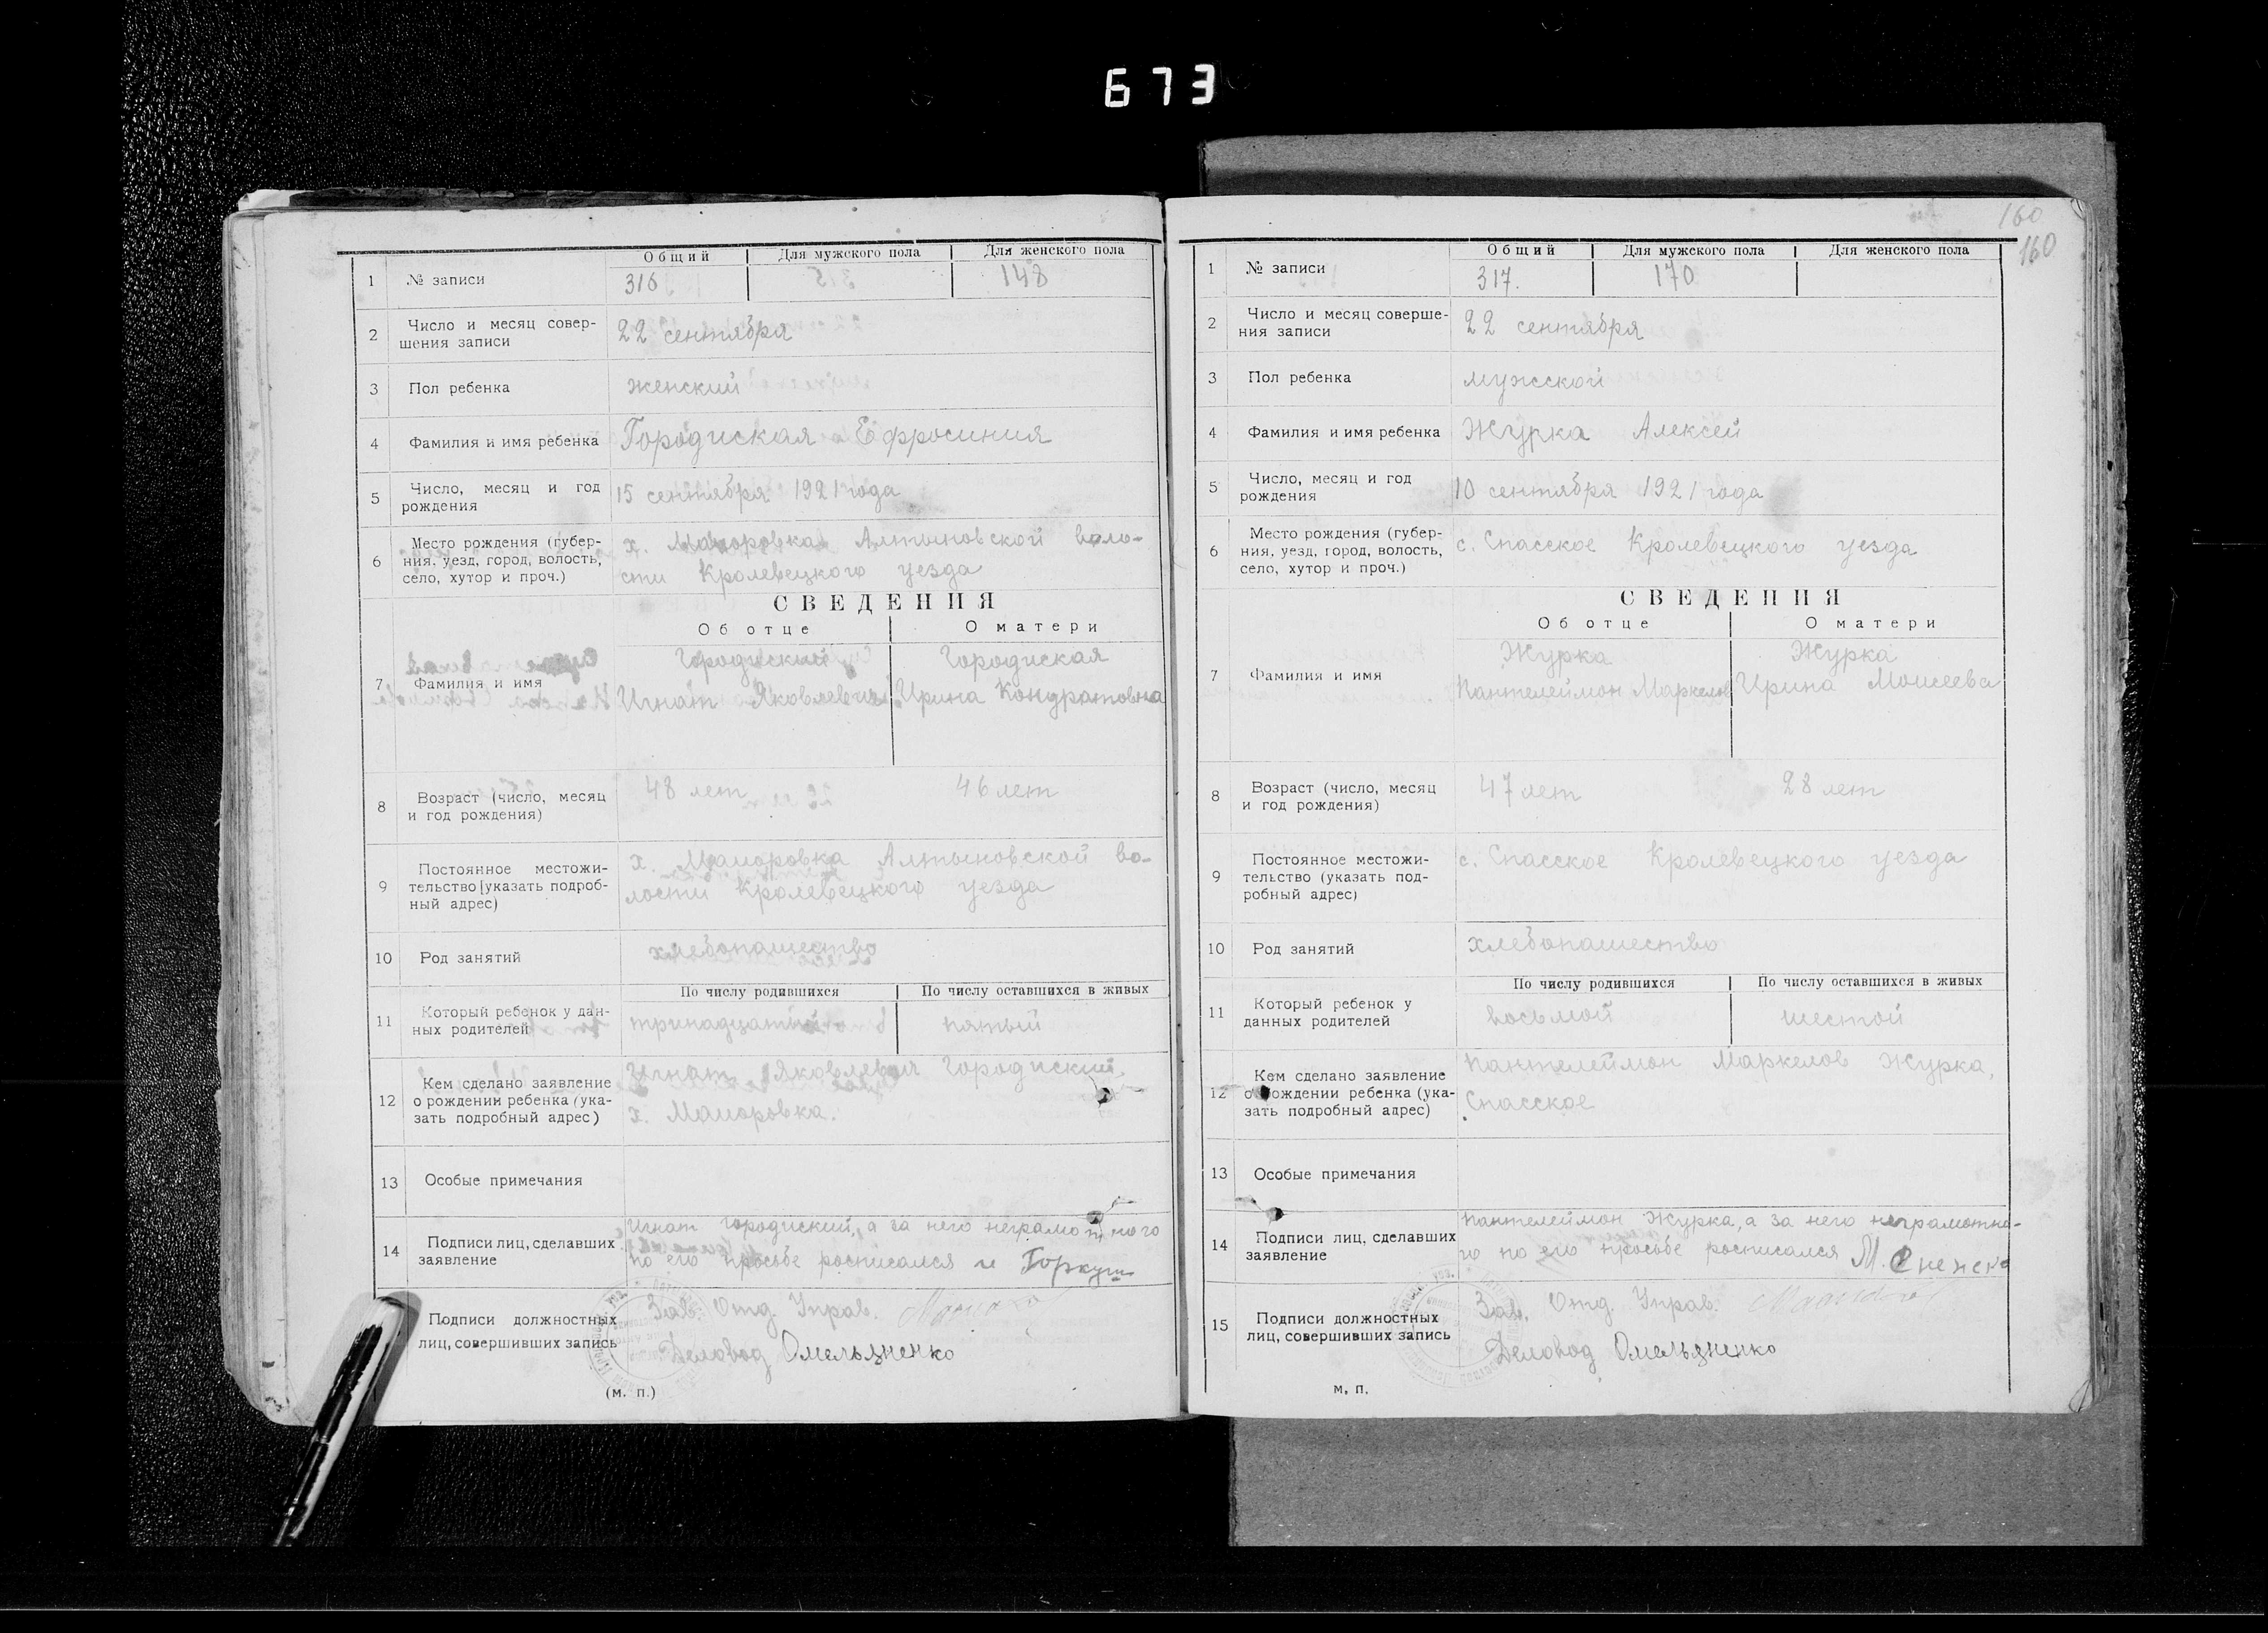 673
Общий Для мужского пола Для женского пола
1 № записи 316 148
2 Число и месяц совер-
шения записи 22 сентября
3 Пол ребенка женский
4 Фамилия и имя ребенка Городиская Ефросиния
5 Число, месяц и год
рождения 15 сентября 1921 года
6 Место рождения (губер-
ния, уезд, город, волость,
село, хутор и проч.) х. Алтыновской воло-
сти Кролевецкого уезда
СВЕДЕНИЯ
Об отце О матери
7 Фамилия и имя Городиский Городиская
Игнат Яковлевич Ирина Кондратовна
8 Возраст (число, месяц
и год рождения) 48 лет 46 лет
9 Постоянное местожи-
тельство [указать подроб-
ный адрес) х. Алтыновской во-
лости Кролевецкого уезда
10 Род занятий хлебопашество
По числу родившихся По числу оставшихся в живых
11 Который ребенок у дан-
ных родителей тринадцатый пятый
12 Кем сделано заявление
о рождении ребенка (ука-
зать подробный адрес) Игнат Яковлевич Городиский.
х.
13 Особые примечания
14 Подписи лиц, сделавших
заявление Игнат Городиский, а за него неграмотного
по его просьбе росписался
Подписи должностных
лиц, совершивших запись Зав. Отд. Управ.
Деловод Омельяненко
(м. п.)
160
160
Общий Для мужского пола Для женского пола
1 № записи 317. 170
2 Число и месяц соверше-
ния записи 22 сентября
3 Пол ребенка мужской
4 Фамилия и имя ребенка Журка Алексей
5 Число, месяц и год
рождения 10 сентября 1921 года
6 Место рождения (губер-
ния, уезд, город, волость,
село, хутор и проч.) с. Спасское Кролевецкого уезда
СВЕДЕНИЯ
Об отце О матери
7 Фамилия и имя Журка Журка
Пантелеймон Маркелов Ирина Моисеева
8 Возраст (число, месяц
и год рождения) 47 лет 28 лет
9 Постоянное местожи-
тельство (указать под-
робный адрес) с. Спасское Кролевецкого уезда
10 Род занятий хлебопашество
По числу родившихся По числу оставшихся в живых
11 Который ребенок у
данных родителей восьмой шестой
12 Кем сделано заявление
о рождении ребенка (ука-
зать подробный адрес) Пантелеймон Маркелов Журка,
Спасское
13 Особые примечания
14 Подписи лиц, сделавших
заявление Пантелеймон Журка, а за него неграмотно-
го по его просьбе росписался М.
15 Подписи должностных
лиц, совершивших запись Зав. Отд. Управ.
Деловод Омельяненко
м. п.